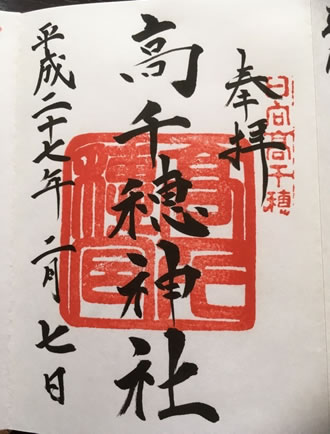 奉拝
日向高千穂
高千穂神社
平成二十七年 二月 七日